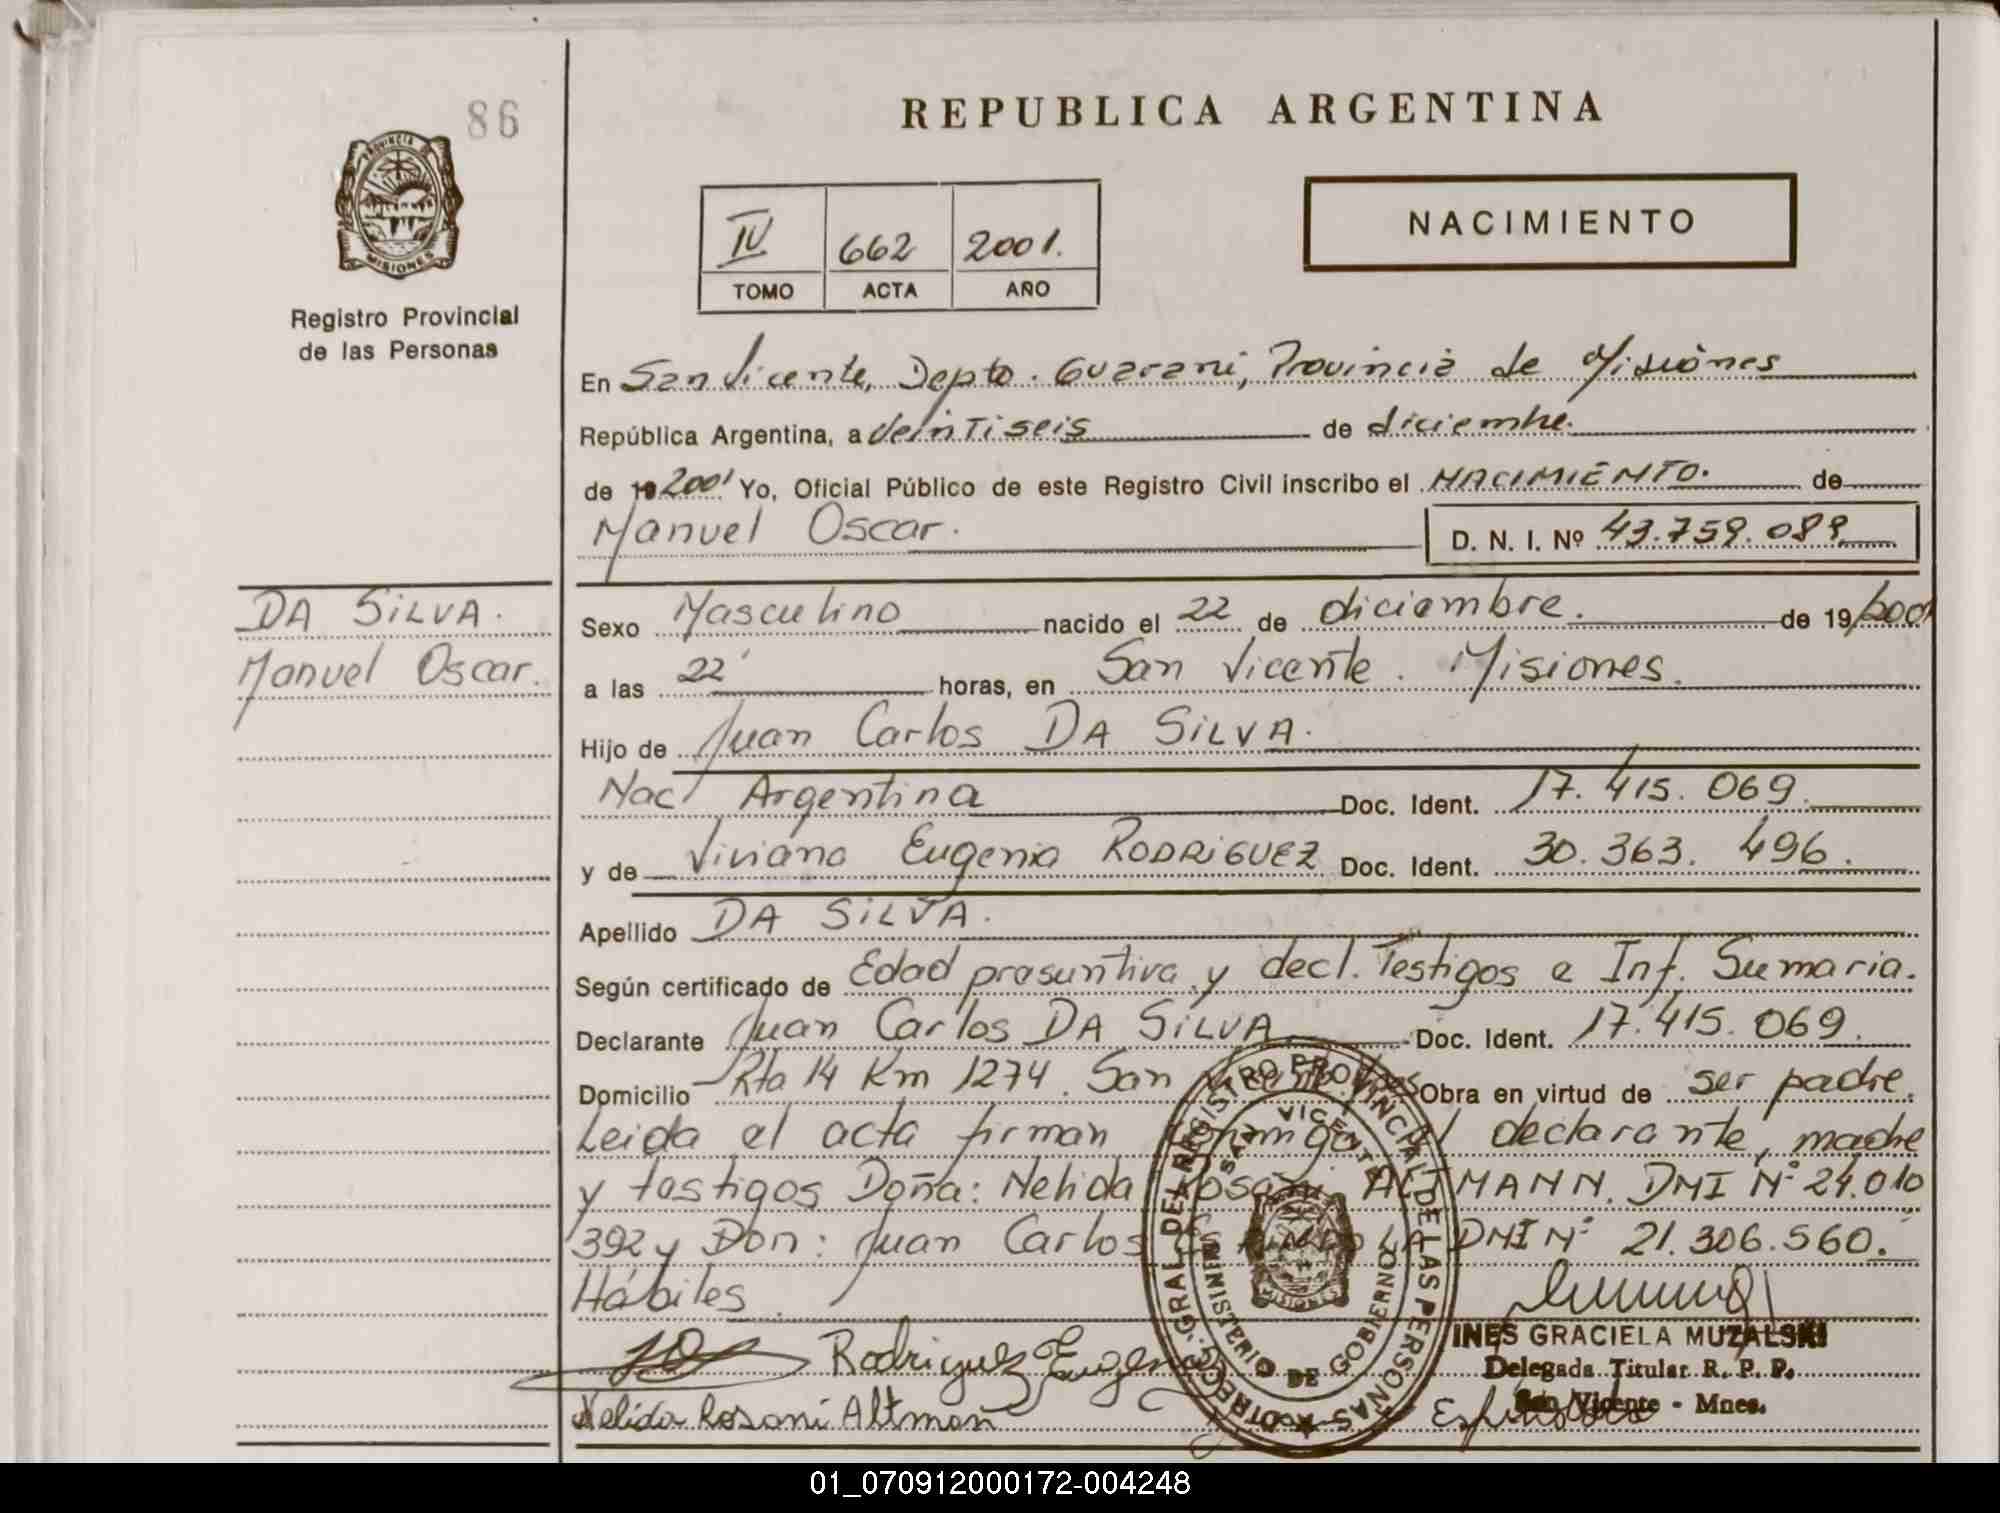 86
PROVINCIA DE
MISIONES
Registro Provincial
de las Personas
REPUBLICA ARGENTINA
IV 662 2001.
TOMO ACTA AÑO
NACIMIENTO
En San Vicente, Depto. Guaraní, Provincia de Misiones
República Argentina, a veintiseis de diciembre.
de 19 2001 Yo, Oficial Público de este Registro Civil inscribo el NACIMIENTO. de
Manuel Oscar. D. N. I. Nº 43.759.089
DA SILVA.
Manuel Oscar.
Sexo Masculino nacido el 22 de diciembre. de 19/2001
a las 22 horas, en San Vicente. Misiones.
Hijo de Juan Carlos DA SILVA.
Nac. Argentina Doc. Ident. 17.415.069.
y de Viviana Eugenia RODRIGUEZ Doc. Ident. 30.363.496.
Apellido DA SILVA.
Según certificado de Edad presuntiva y decl. Testigos e Inf. Sumaria.
Declarante Juan Carlos DA SILVA Doc. Ident. 17.415.069.
Domicilio Rta 14 Km 1274. San Vicente Mnes Obra en virtud de ser padre.
Leida el acta firman conmigo el declarante, madre
y testigos Doña: Nelida Rosani ALTMANN. DNI Nº 24.010
392 y Don: Juan Carlos DNI Nº 21.306.560.
Hábiles.
Rodriguez Eugenia
Nelida Rosani Altman
DIREC. GRAL. DEL REGISTRO PROVINCIAL DE LAS PERSONAS
SAN VICENTE
MINISTERIO DE GOBIERNO
MISIONES
INES GRACIELA MUZALSKI
Delegada Titular R. P. P.
San Vicente - Mnes.
01_070912000172-004248